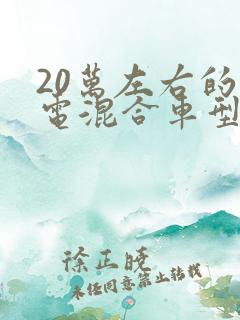 20萬左右的
電混合車型
徐正曉
未经同意禁止转载